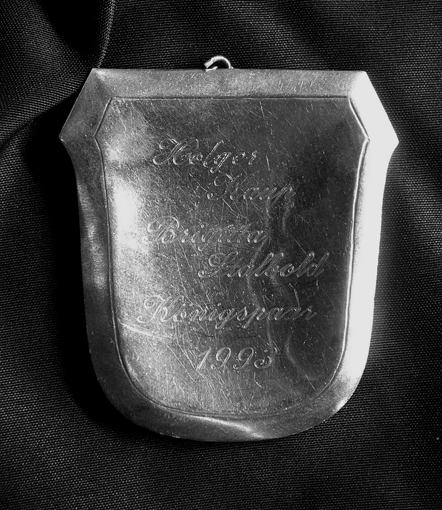 Holger
Kaup
Brigitta
Sidhold
Königspaar
1993